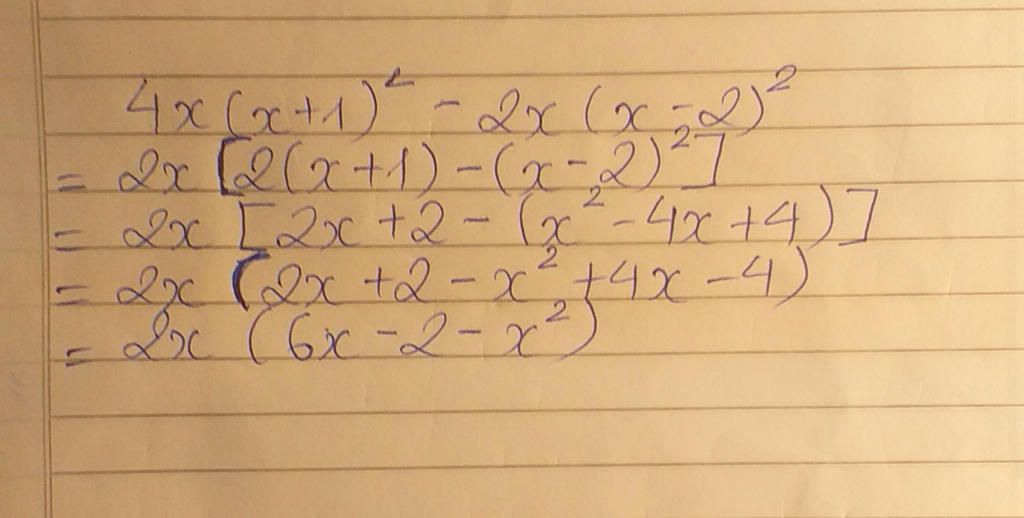 4x(x+1)² - 2x(x-2)²
= 2x[2(x+1)-(x-2)²]
= 2x[2x+2-(x²-4x+4)]
= 2x(2x+2-x²+4x-4)
= 2x(6x-2-x²)